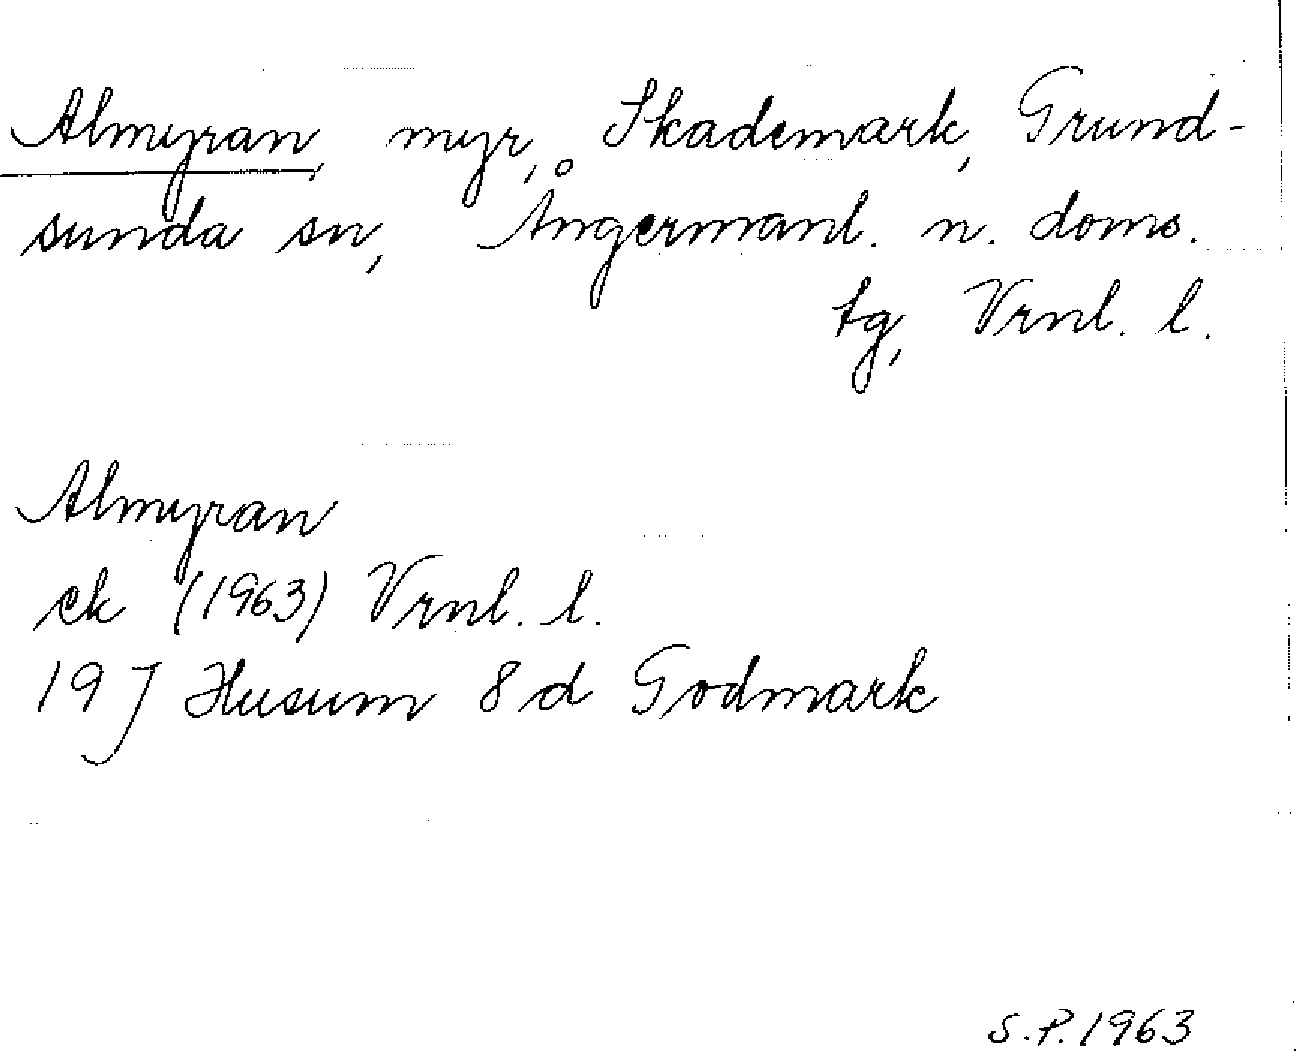 Almyran, myr, Skademark, Grund-
sunda sn, Ångermanl. n. doms.
tg, Vrnl. l.
Almyran
ek (1963) Vrnl. l.
19 J Husum 8 d Godmark
S.P. 1963